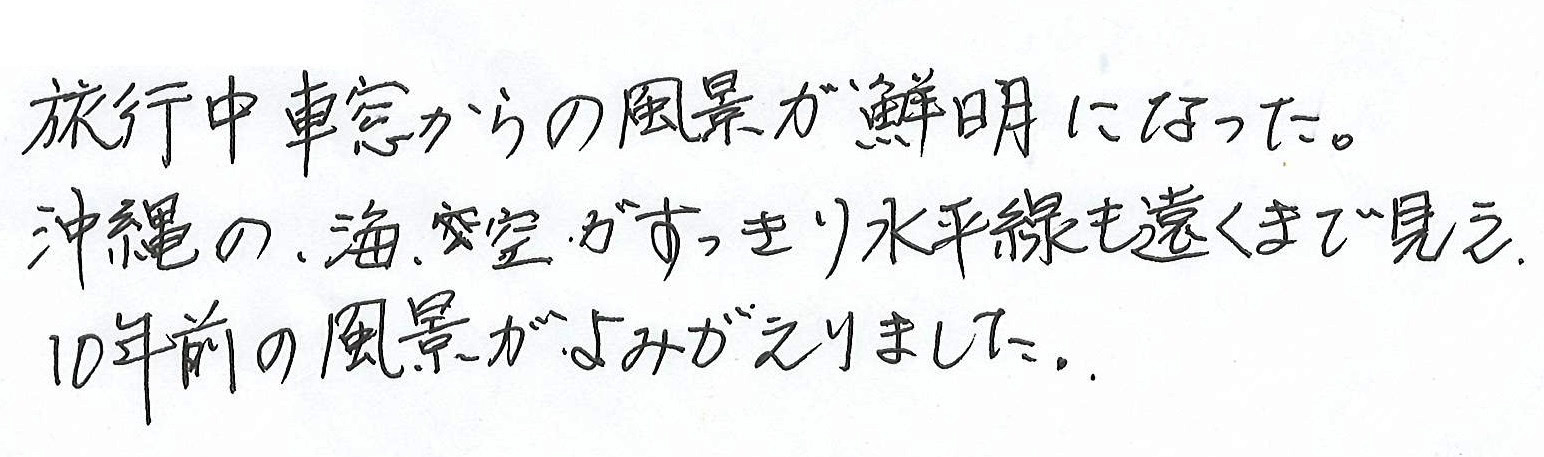 旅行中車窓からの風景が鮮明になった。
沖縄の、海、空がすっきり水平線も遠くまで見え、
10年前の風景がよみがえりました。